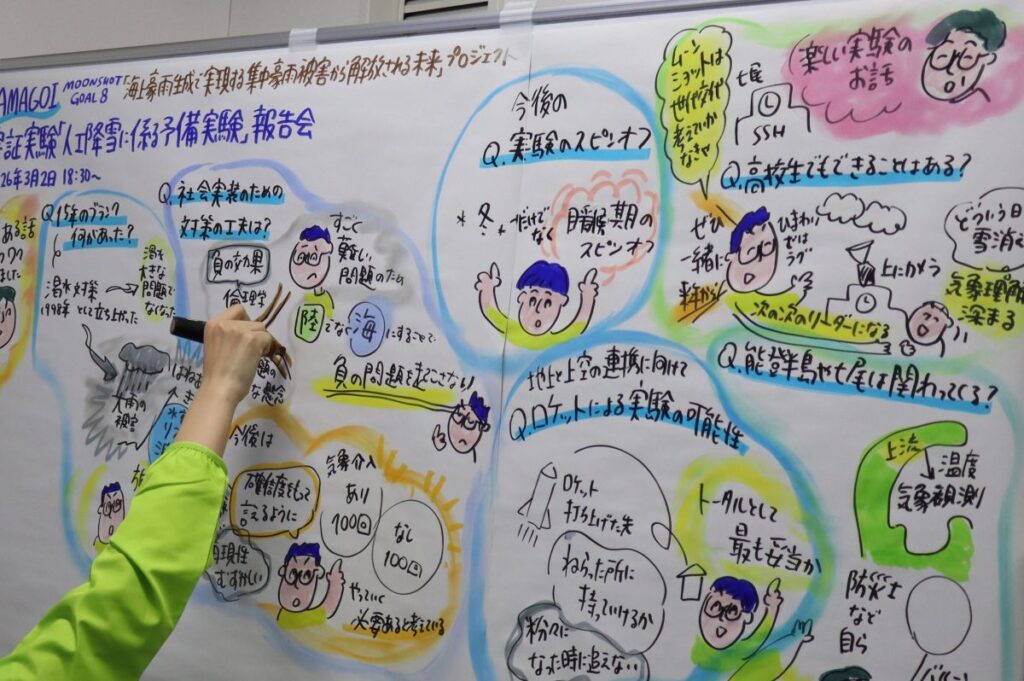 AMAGOI
MOONSHOT
GOAL 8
「海上豪雨生成で実現する集中豪雨被害から解放される未来」プロジェクト
実証実験「人工降雪に係る予備実験」報告会
26年3月2日 18:30〜
ある話
ました
Q.15年のブランク
何があった?
渇水対策
1998年 として立ち上がった
渇水
大きな
問題で
なくなった
大雨の
被害
Q.社会実装のための
対策の工夫は?
負の効果
倫理学
すごく
難しい
問題のため
陸
でなく
海
にすることで
負の問題を起こさない
な懸念
今後は
確信度をもって
言えるように
再現性
むずかしい
気象介入
あり
100回
なし
100回
やっていく
必要あると考えている
今後の
Q.実験のスピンオフ
*冬だけで
なく
暖候期の
スピンオフ
地上と上空の連携に向けて
Q.ロケットによる実験の可能性
ロケット
打ち上げた先
ねらった所に
持っていけるか
粉々に
なった時に追えない
トータルとして
最も妥当か
ムーン
ショットは
世代交代
考えていか
なきゃ
七尾
SSH
楽しい実験の
お話
Q.高校生でもできることはある?
ぜひ
一緒に
ひまわり
上にカメラ
次の次のリーダーになる
どういう日
雪消
気象理解
深まる
Q.能登半島や七尾は関わってくる?
上流
温度
気象観測
防災士
など
自ら